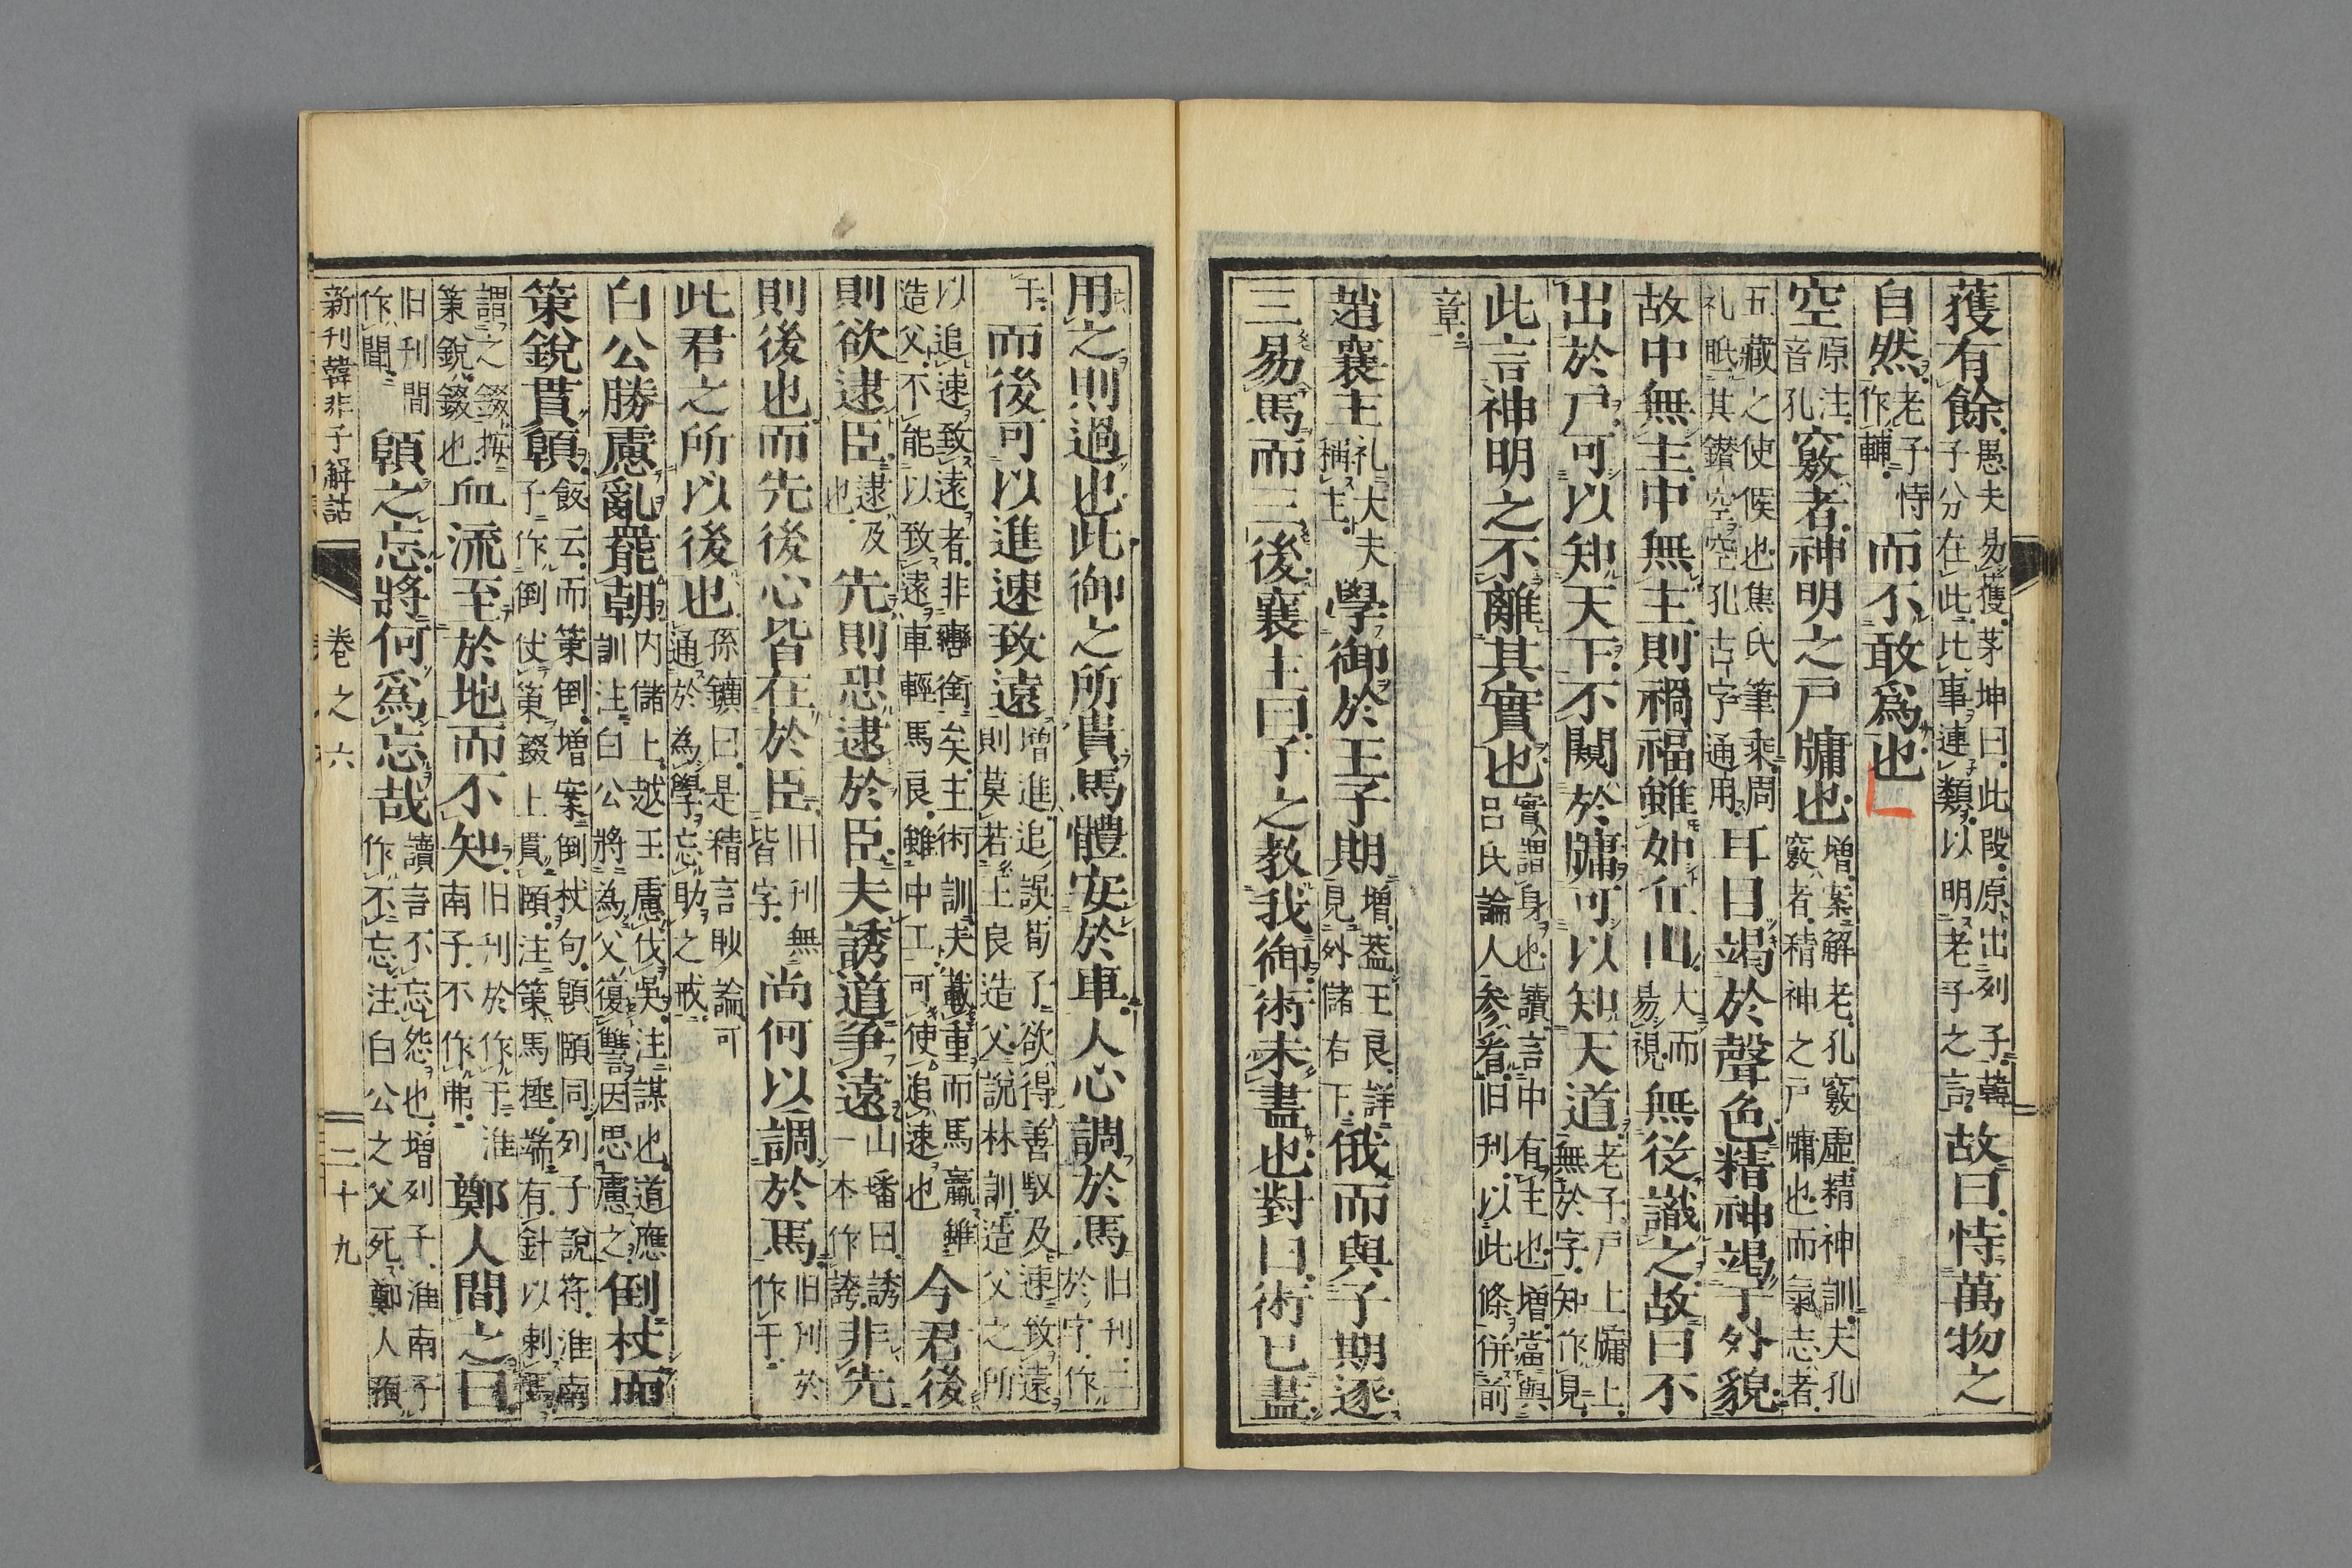 獲有餘愚夫易獲茅坤曰此段原出列子韓子分在此比事連類以明老子之言故曰恃萬物之
自然老子恃作輔而不敢爲也
空原注音孔竅者神明之戸牖也增案解老孔竅虛精神訓夫孔竅者精神之戸牖也而氣志者
五藏之使候也焦氏筆乘周礼眡其鑚空空孔古字通用耳目竭於聲色精神竭于外貌
故中無主中無主則禍福雖如丘山大而易視無從識之故曰不
出於戸可以知天下不闚於牖可以知天道老子戸上牖上無於字知作見
此言神明之不離其實也實謂身也讀言中有主也增當與呂氏論人参看旧刊以此條併前
章
趙襄主礼大夫稱主學御於王子期增蓋王良詳見外儲右下俄而與子期逐
三易馬而三後襄主曰子之教我御術未盡也對曰術已盡
用之則過也此御之所貴馬體安於車人心調於馬旧刊二於字作
于而後可以進速致遠增進追誤荀子欲得善馭及速致遠則莫若王良造父說林訓造父之所
以追速致遠者非轡銜矣主術訓夫載重而馬羸雖造父不能以致遠車輕馬良雖中工可使追速也今君後
則欲逮臣逮及也先則恐逮於臣夫誘道爭遠山璠曰誘一本作誇非先
則後也而先後心皆在於臣旧刊無皆字尚何以調於馬旧刊於作于
此君之所以後也孫鑛曰是精言眇論可通於為學忘助之戒
白公勝慮亂罷朝内儲上越王慮伐吳注謀也道應訓注白公將為父復讐因思慮之倒杖而
策銳貫顊飯云而策倒增案倒杖句顊頤同列子說符淮南子作倒仗策錣上貫頤注策馬捶端有針以刺馬
謂之錣按策銳錣也血流至於地而不知旧刊於作于淮南子不作弗鄭人間之曰
旧刊間作聞顊之忘將何爲忘哉讀言不忘怨也增列子淮南子作不忘注白公之父死鄭人預
新刊韓非子解詁 卷之六 二十九